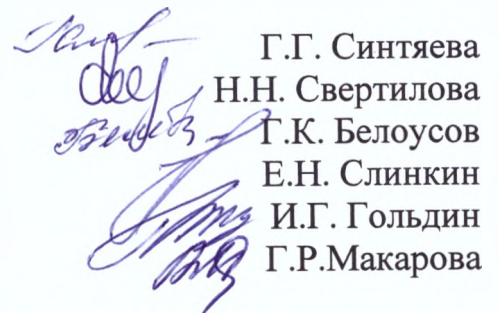 Г.Г. Синтяева
Н.Н. Свертилова
Г.К. Белоусов
Е.Н. Слинкин
И.Г. Гольдин
Г.Р.Макарова